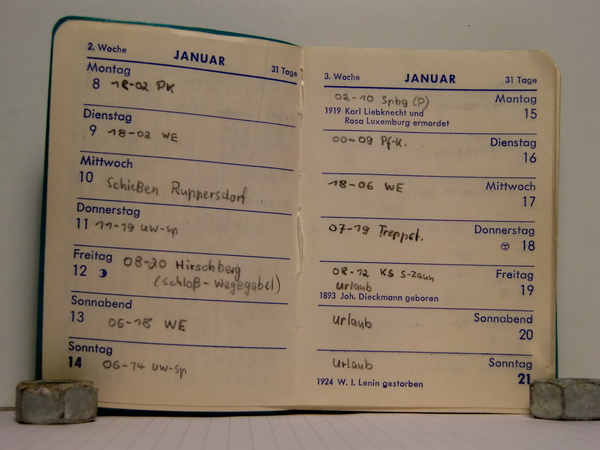 2. Woche JANUAR 31 Tage
Montag
8 18-02 PK
Dienstag
9 18-02 WE
Mittwoch
10 Schießen Ruppersdorf
Donnerstag
11 11-19 UW-Sp
Freitag
12 08-20 Hirschberg
(Schloß-Wegegabel)
Sonnabend
13 06-18 WE
Sonntag
14 06-14 UW-Sp
3. Woche JANUAR 31 Tage
02-10 Spbg (P) Montag
1919 Karl Liebknecht und 15
Rosa Luxemburg ermordet
00-09 Pf-K. Dienstag
16
18-06 WE Mittwoch
17
07-19 Treppst. Donnerstag
18
08-12 KS S-Zaun Freitag
Urlaub 19
1893 Joh. Dieckmann geboren
Urlaub Sonnabend
20
Urlaub Sonntag
1924 W. I. Lenin gestorben 21